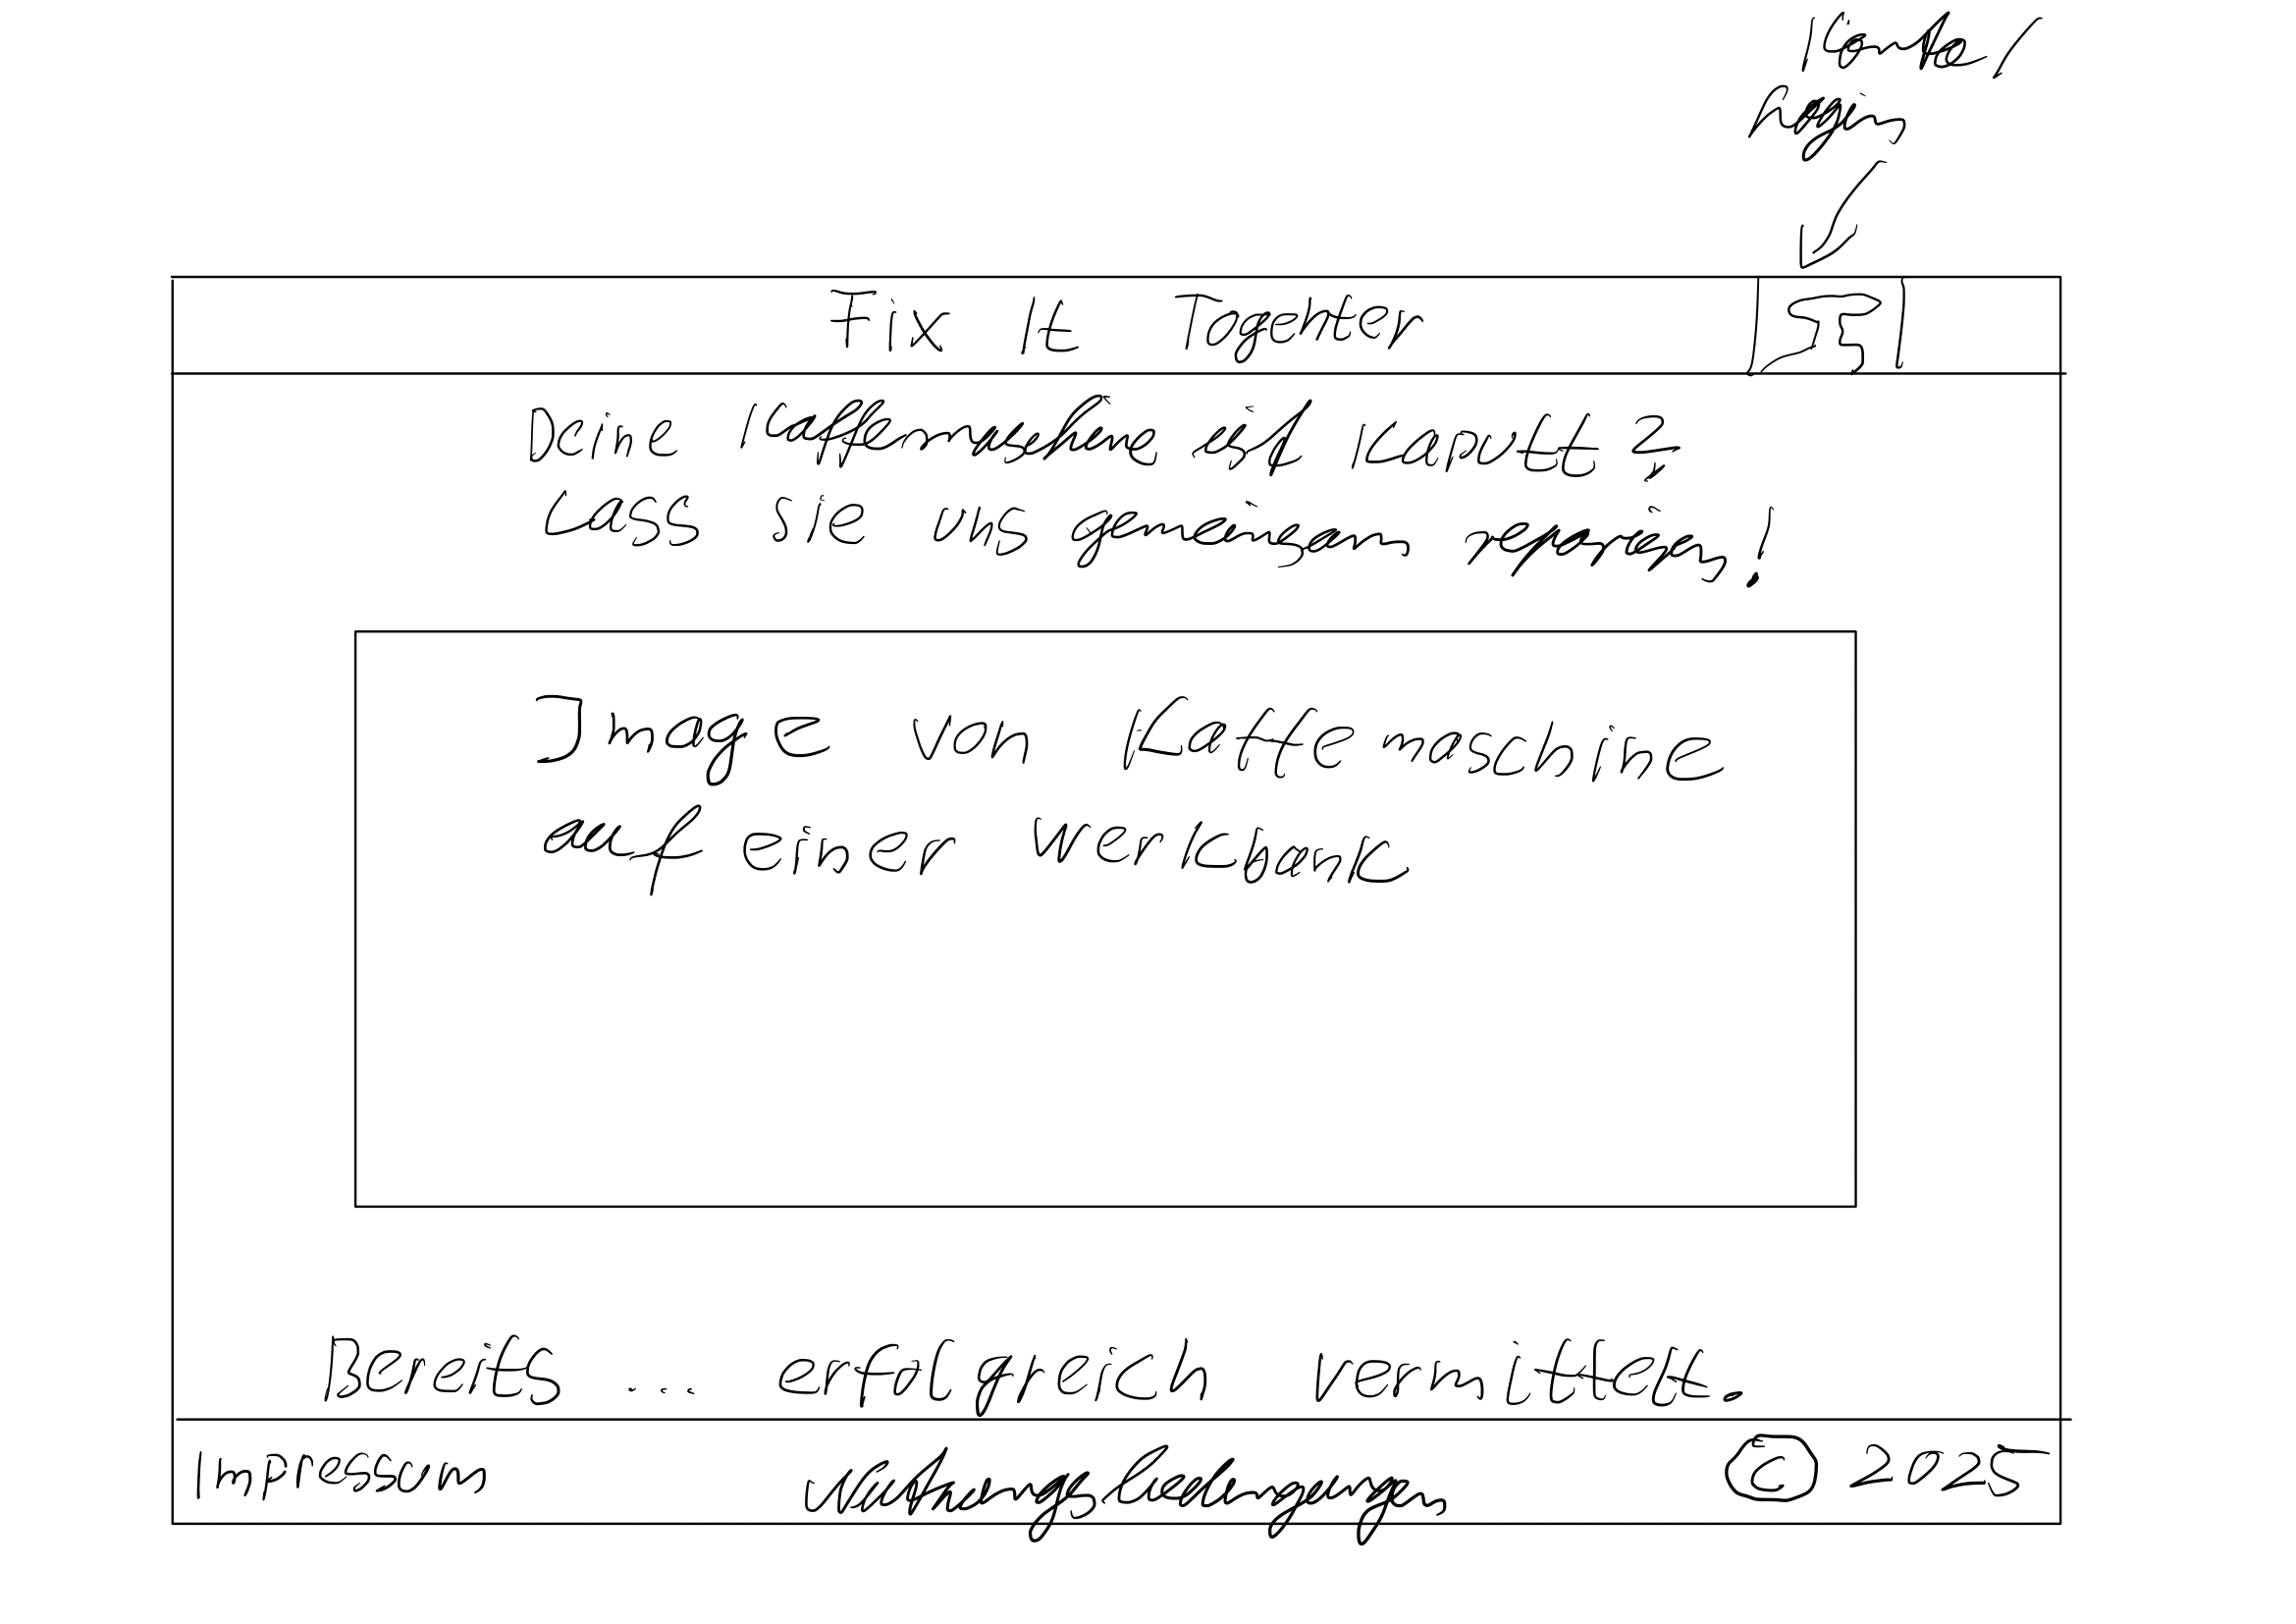 Konto /
Login
Fix It Togehter
Deine Kaffemaschine ist kaputt?
Lass sie uns gemeinsam reparieren!
Image von Kaffemaschine
auf einer Werkbank
Bereits ... erfolgreich vermittelt.
Impressum
© 2025